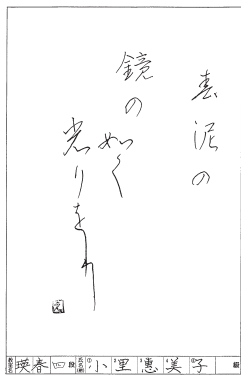 春泥の
鏡の如く
光りをり
教室名 瑛春 四 段 氏名(号) 小里惠美子 級